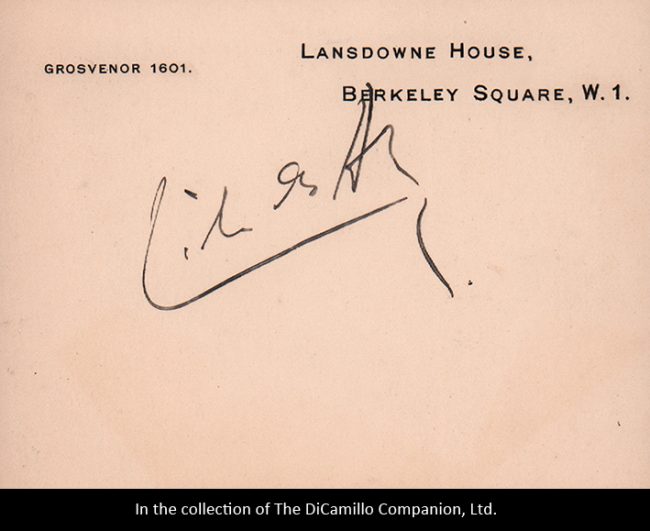 GROSVENOR 1601.
LANSDOWNE HOUSE,
BERKELEY SQUARE, W. 1.
In the collection of The DiCamillo Companion, Ltd.